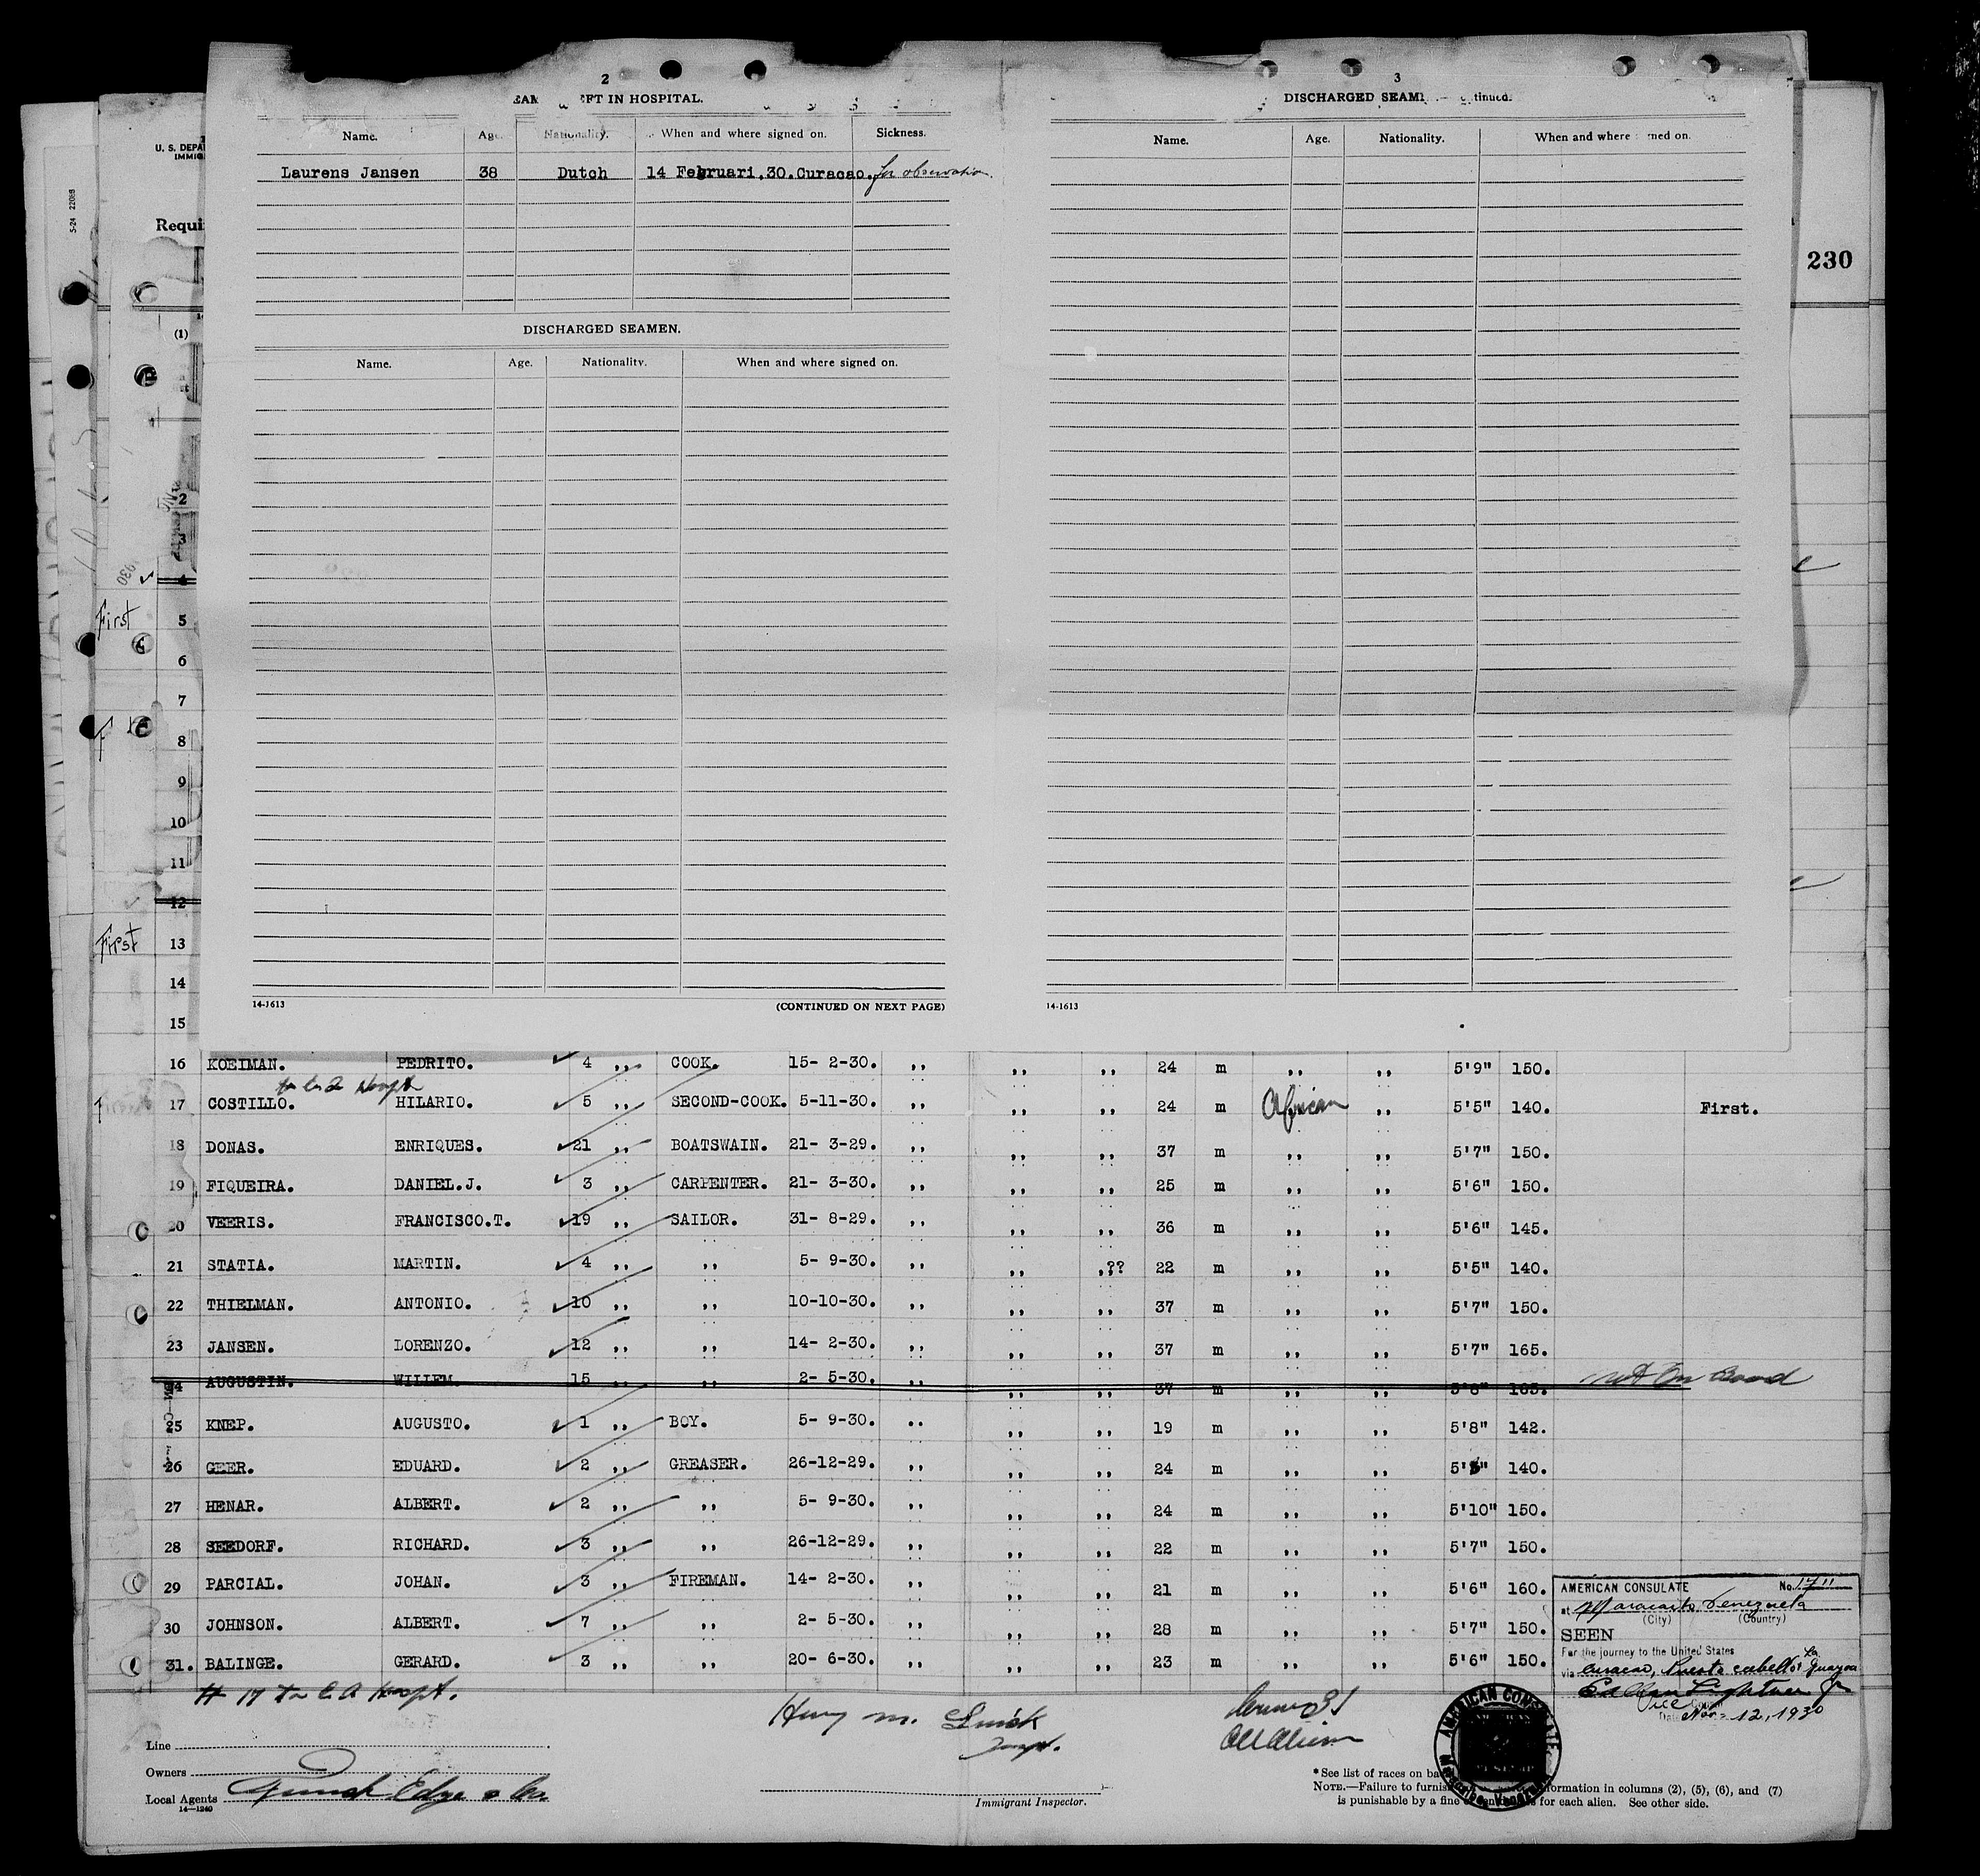 2
EFT IN HOSPITAL.
Name. Age. Nationality. When and where signed on. Sickness.
Laurens Jansen 38 Dutch 14 Februari.30.Curacao. for observation.
DISCHARGED SEAMEN.
Name. Age. Nationality. When and where signed on.
14-1613 (CONTINUED ON NEXT PAGE)
3
DISCHARGED SEAM tinued.
Name. Age. Nationality. When and where ned on.
14-1613
U. S. DEPA
IMMIG
5-24 22086
Requi
230
(1)
2
3
930
4
First 5
6
7
8
9
10
11
12
First 13
14
15
16 KOEIMAN. PEDRITO. 4 ,, COOK. 15- 2-30. ,, ,, ,, 24 m ,, ,, 5'9" 150.
17 COSTILLO. HILARIO. 5 ,, SECOND-COOK. 5-11-30. ,, ,, ,, 24 m African ,, 5'5" 140. First.
18 DONAS. ENRIQUES. 21 ,, BOATSWAIN. 21- 3-29. ,, ,, ,, 37 m ,, ,, 5'7" 150.
19 FIQUEIRA. DANIEL.J. 3 ,, CARPENTER. 21- 3-30. ,, ,, ,, 25 m ,, ,, 5'6" 150.
20 VEERIS. FRANCISCO.T. 19 ,, SAILOR. 31- 8-29. ,, ,, ,, 36 m ,, ,, 5'6" 145.
21 STATIA. MARTIN. 4 ,, ,, 5- 9-30. ,, ,, ,?? 22 m ,, ,, 5'5" 140.
22 THIELMAN. ANTONIO. 10 ,, ,, 10-10-30. ,, ,, ,, 37 m ,, ,, 5'7" 150.
23 JANSEN. LORENZO. 12 ,, ,, 14- 2-30. ,, ,, ,, 37 m ,, ,, 5'7" 165.
24 AUGUSTIN. WILLEM. 15 ,, ,, 2- 5-30. ,, ,, ,, 37 m ,, ,, 5'8" 165. not on Board
25 KNEP. AUGUSTO. 1 ,, BOY. 5- 9-30. ,, ,, ,, 19 m ,, ,, 5'8" 142.
26 GEER. EDUARD. 2 ,, GREASER. 26-12-29. ,, ,, ,, 24 m ,, ,, 5' " 140.
27 HENAR. ALBERT. 2 ,, ,, 5- 9-30. ,, ,, ,, 24 m ,, ,, 5'10" 150.
28 SEEDORF. RICHARD. 3 ,, ,, 26-12-29. ,, ,, ,, 22 m ,, ,, 5'7" 150.
29 PARCIAL. JOHAN. 3 ,, FIREMAN. 14- 2-30. ,, ,, ,, 21 m ,, ,, 5'6" 160.
30 JOHNSON. ALBERT. 7 ,, ,, 2- 5-30. ,, ,, ,, 28 m ,, ,, 5'7" 150.
31. BALINGE. GERARD. 3 ,, ,, 20- 6-30. ,, ,, ,, 23 m ,, ,, 5'6" 150.
AMERICAN CONSULATE No. 1711
at Maracaibo, Venezuela
(City) (Country)
SEEN
For the journey to the United States
via Curacao, Puerto cabello, La Guayra
Vice
Nov. 12, 1930
# 17 To Hospt.
Henry M.
Inspt.
AMERICAN CONSULATE
Maracaibo, Venezuela
Line
Owners
Local Agents Funch Edye & Co.
14—1240
Immigrant Inspector.
*See list of races on ba
NOTE.—Failure to furnis formation in columns (2), (5), (6), and (7)
is punishable by a fine for each alien. See other side.